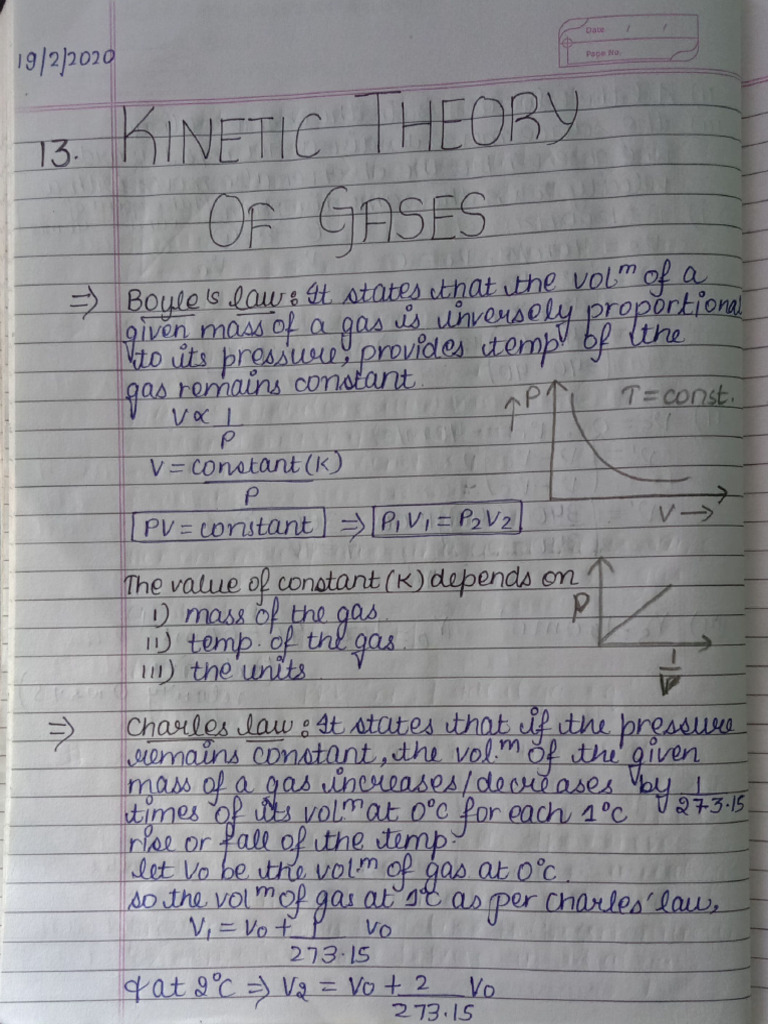 19/2/2020
Date / /
Page No.
13. KINETIC THEORY
OF GASES
⇒ Boyle's law : It states that the volᵐ of a
given mass of a gas is inversely proportional
to its pressure, provides temp. of the
gas remains constant.
V ∝ 1/P
V = constant (K)/P
PV = constant ⇒ P₁V₁ = P₂V₂
↑ P T = const.
V →
The value of constant (K) depends on
i) mass of the gas
ii) temp. of the gas
iii) the units
P
1/V
⇒ Charles law : It states that if the pressure
remains constant, the vol.ᵐ of the given
mass of a gas increases/decreases by 1/273.15
times of its volᵐ at 0°C for each 1°C
rise or fall of the temp.
let V₀ be the vol.ᵐ of gas at 0°C.
so the volᵐ of gas at 1°C as per Charles' law,
V₁ = V₀ + 1/273.15 V₀
& at 2°C ⇒ V₂ = V₀ + 2/273.15 V₀